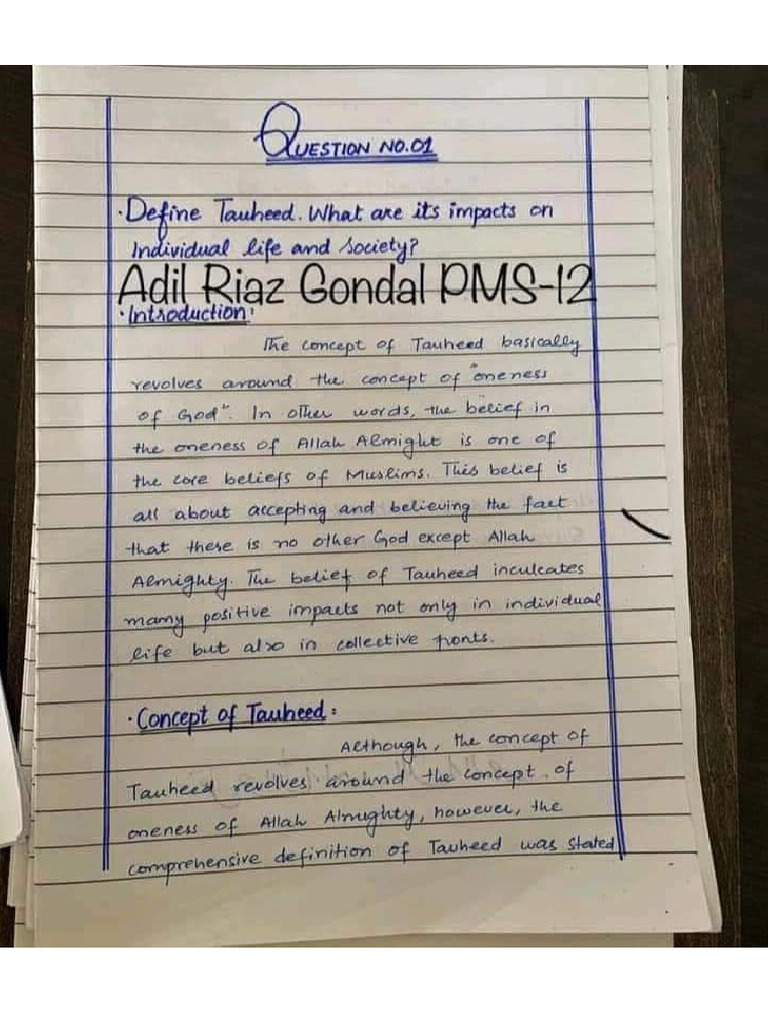 QUESTION NO.01
·Define Tauheed. What are its impacts on
individual life and society?
Adil Riaz Gondal PMS-12
·Introduction:
The concept of Tauheed basically
revolves around the concept of "oneness
of God". In other words, the belief in
the oneness of Allah Almight is one of
the core beliefs of Muslims. This belief is
all about accepting and believing the fact
that there is no other God except Allah
Almighty. The belief of Tauheed inculcates
many positive impacts not only in individual
life but also in collective fronts.
·Concept of Tauheed:
Although, the concept of
Tauheed revolves around the concept of
oneness of Allah Almughty, however, the
comprehensive definition of Tauheed was stated